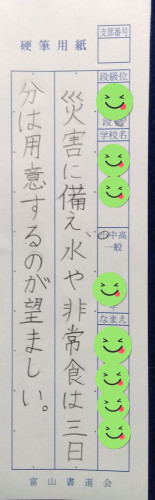 硬筆用紙
支部番号
段級位
段
学校名
中高
一般
なまえ
災害に備え、水や非常食は三日
分は用意するのが望ましい。
富山書道会